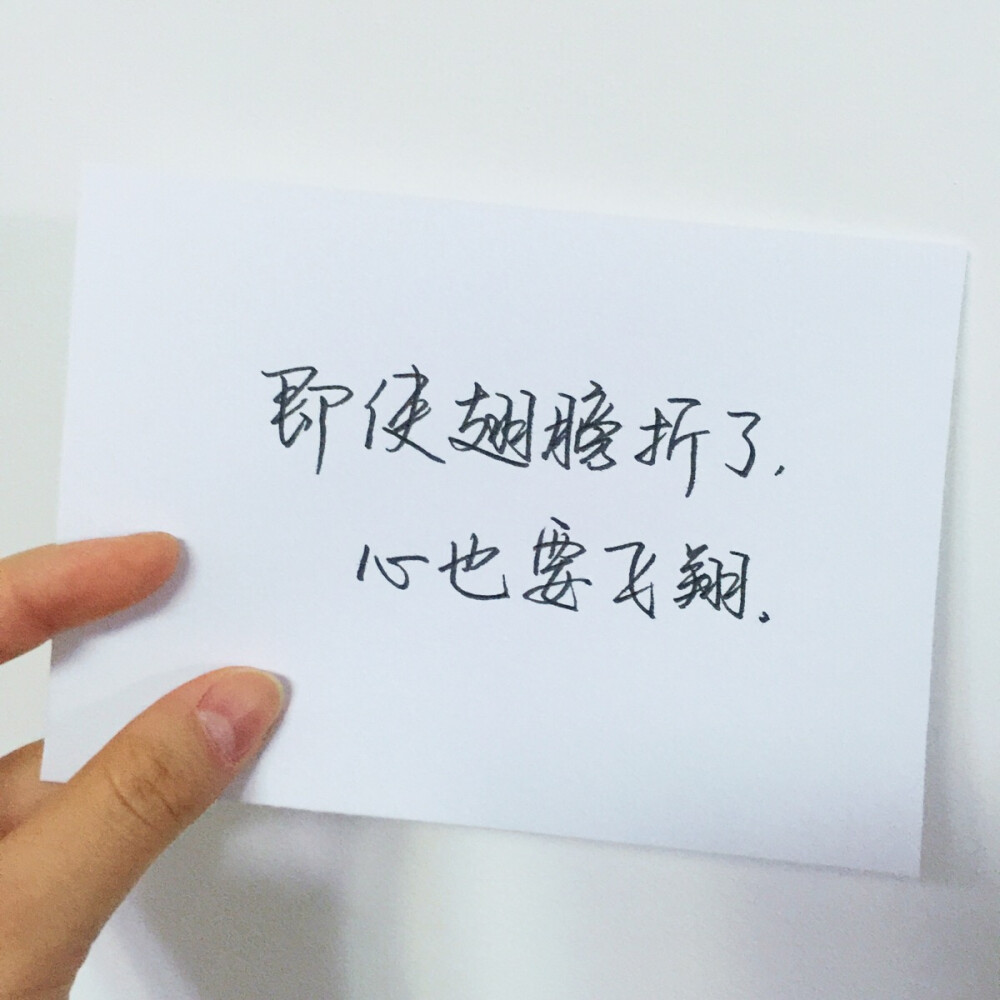 即使翅膀折了,
心也要飞翔.